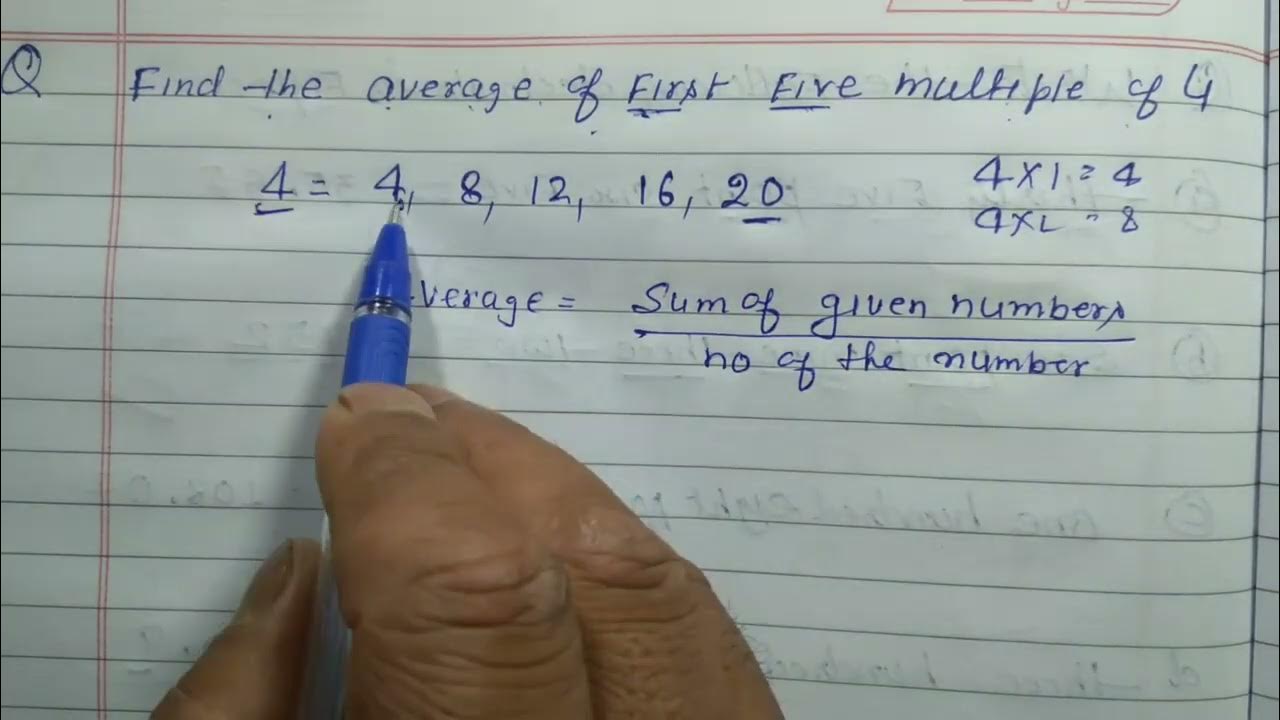 Q Find the average of First Five multiple of 4
4 = 4, 8, 12, 16, 20
4 X 1 = 4
4 X 2 = 8
verage = Sum of given numbers
no of the number